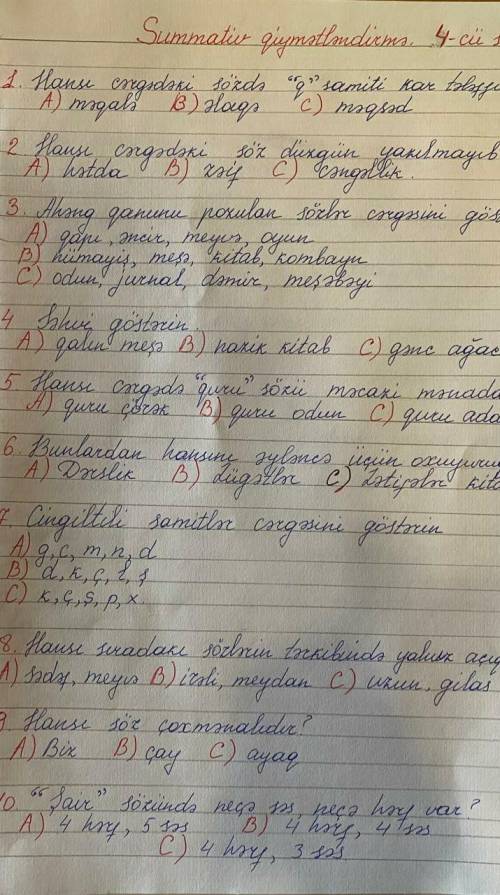 Summativ qiymətləndirmə. 4-cü
1. Hansı cərgədəki sözdə "q" samiti kar
A) məqalə B) əlaqə C) məqsəd
2 Hansı cərgədəki söz düzgün yazılmayıb
A) hətda B) zəif C) cəngəllik.
3. Ahəng qanunu pozulan sözlər cərgəsini
A) qapı, əncir, meyvə, oyun
B) nümayiş, meşə, kitab, kombayn
C) odun, jurnal, dəmir, meşəbəyi
4 Səhvi göstərin.
A) qalın meşə B) nazik kitab C) gənc ağac
5. Hansı cərgədə "quru" sözü məcazi mənada
A) quru çörək B) quru odun C) quru
6. Bunlardan hansını əyləncə üçün
A) Dərslik B) Lüğətlər C) Lətifələr
7. Cingiltili samitlər cərgəsini göstərin
A) g, c, m, n, d
B) d, k, ç, t, ş
C) k, ç, ş, p, x.
8. Hansı sıradakı sözlərin tərkibində yalnız
A) sədəf, meyvə B) irəli, meydan C) uzun, gilas
9 Hansı söz çoxmənalıdır?
A) Biz B) çay C) ayaq
10. "Şair" sözündə neçə səs, neçə hərf var?
A) 4 hərf, 5 səs B) 4 hərf, 4 səs
C) 4 hərf, 3 səs